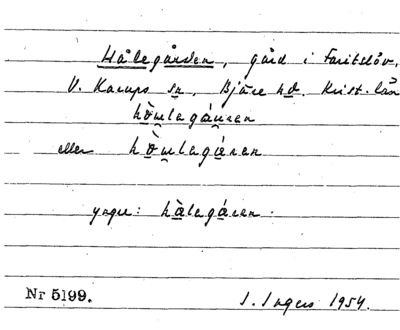 Hålegården, gård i Faritslöv,
V. Karups sn, Bjäre hd. Krist. län
hòwlegáuren
eller hòwlegáren
yngre: hàlegáren.
Nr 5199. I. Ingers 1954.